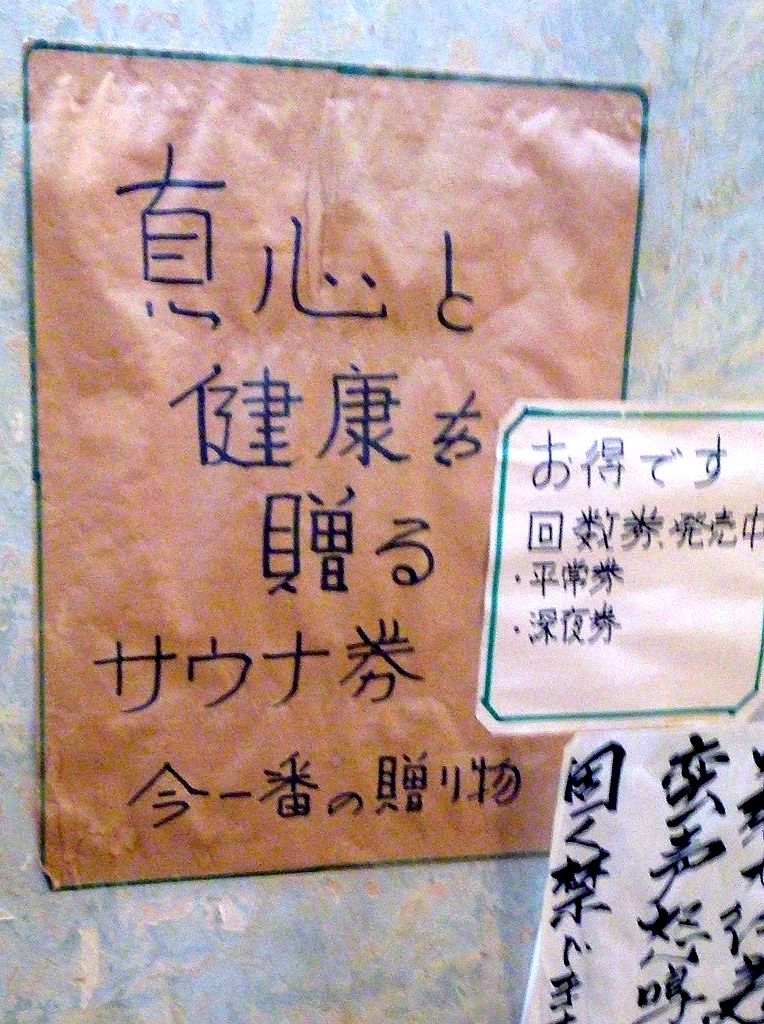 真心と
健康を
贈る
サウナ券
今一番の贈り物
お得です
回数券発売中
・平常券
・深夜券
蛮声怒号
固く禁じ